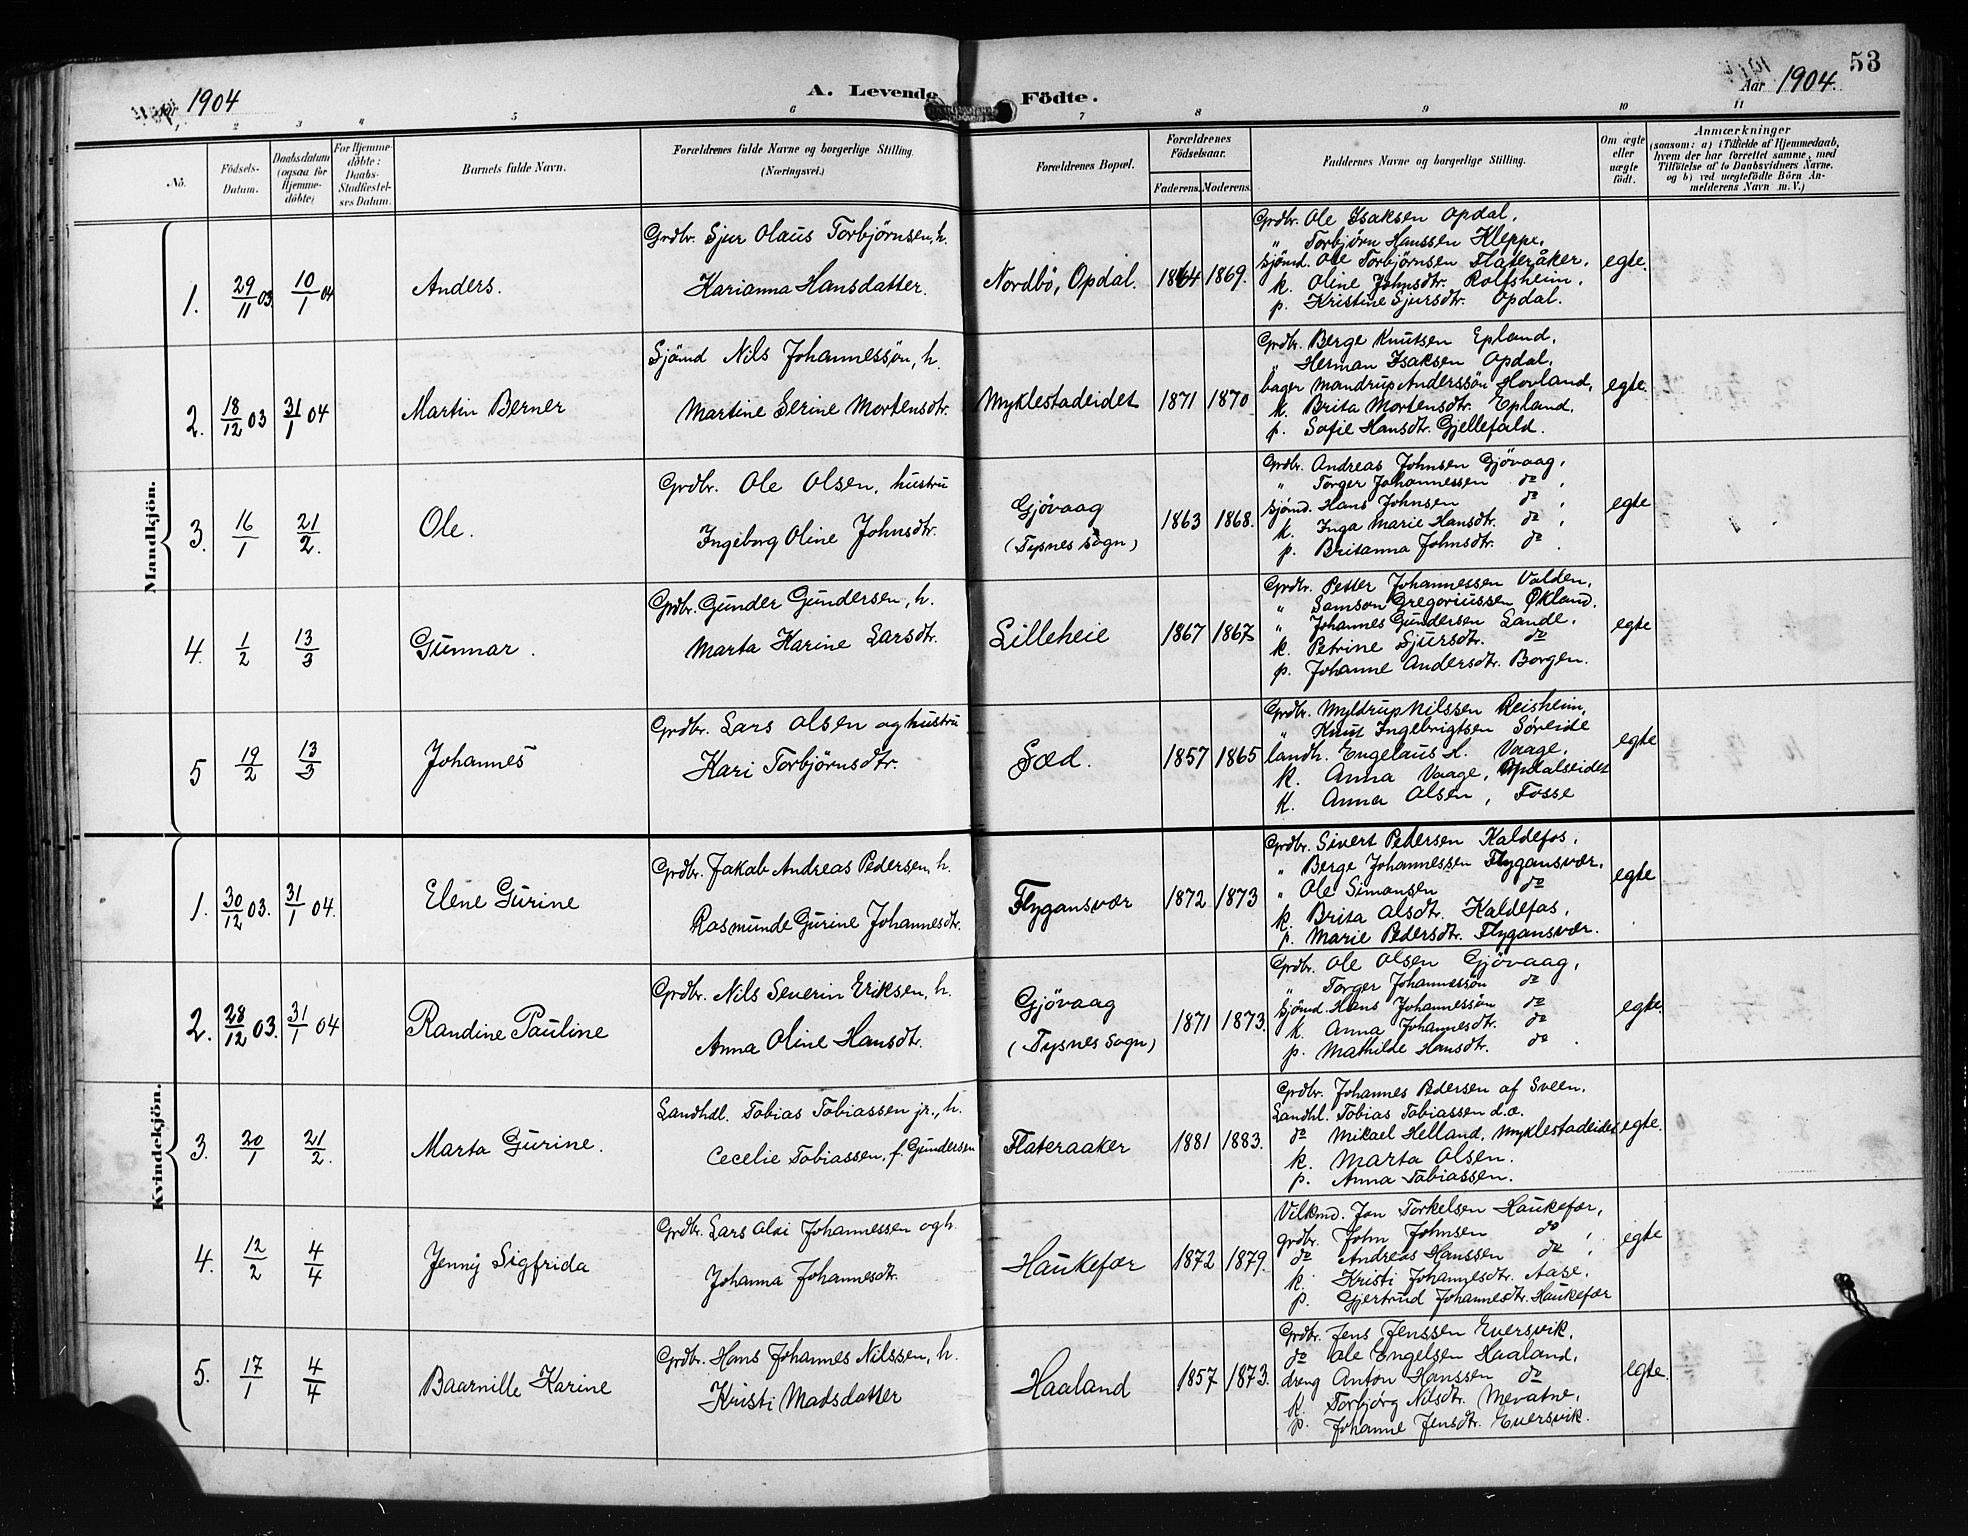 53
Aar 1904
A. Levende Födte.
Aar 1904.
1 2 3 4 5 6 7 8 9 10 11
No.
Födsels-Datum.
Daabsdatum (ogsaa for Hjemmedöbte)
For Hjemmedöbte: Daabs-Stadfæstelses Datum.
Barnets fulde Navn.
Forældrenes fulde Navne og borgerlige Stilling.
(Næringsvei.)
Forældrenes Bopæl.
Forældrenes Födselsaar.
Faderens. Moderens.
Faddernes Navne og borgerlige Stilling.
Om ægte eller uægte födt.
Anmærkninger
(saasom: a) i Tilfælde af Hjemmedaab, hvem der har forrettet samme, med Tilföielse af to Daabsvidners Navne, og b) ved uægtefödte Börn Anmelderens Navn m. V.)
Mandkjön.
1. 29/11 03 10/1 04 Anders.
Grdbr. Sjur Olaus Torbjørnsen, h.
Karianna Hansdatter.
Nordbö, Opdal. 1864 1869.
Grdbr. Ole Isaksen Opdal,
" Torbjørn Hanssen Kleppe,
sjömd. Ole Torbjörnsen Flateråker,
k. Oline Johnsdtr. Rolfsheim,
p. Kristine Sjursdtr. Opdal.
egte.
2. 18/12 03 31/1 04 Martin Berner
Sjömd Nils Johannessön, h.
Martine Serine Mortensdtr.
Myklestadeidet 1871 1870
Grdbr. Berge Knutsen Epland,
" Herman Isaksen Opdal,
bager Mandrup Anderssön Hovland,
k. Brita Mortensdtr. Epland,
p. Sofie Hansdtr. Gjellefald.
egte.
3. 16/1 21/2. Ole.
Grdbr. Ole Olsen, hustru
Ingeborg Oline Johnsdtr.
Gjövaag
(Tysnes Sogn)
1863 1868.
Grdbr. Andreas Johnsen Gjövaag,
" Torger Johannessen do,
sjömd. Hans Johnsen do,
k. Inga Marie Hansdtr. do,
p. Britanna Johnsdtr. do.
egte
4. 1/2 13/3 Gunnar.
Grdbr. Gunder Gundersen, h.
Marta Karine Larsdtr.
Lilleheie 1867 1867
Grdbr. Petter Johannessen Valden,
" Samson Gregoriussen Økland.
" Johannes Gundersen Lande,
k. Petrine Sjursdtr. do
p. Johanne Andersdtr. Borgen.
egte
5 19/2 13/3 Johannes
Grdbr. Lars Olsen og hustru
Kari Torbjörnsdtr.
Sæd. 1857 1865
Grdbr. Myldrup Nilssen Reisheim,
" Knut Ingebrigtsen Søreide
landh. Engelaus H. Vaage,
k. Anna Vaage, Opdalseidet
k. Anna Olsen, Fosse
egte
Kvindekjön.
1. 30/12 03. 31/1 04. Elene Gurine
Grdbr. Jakob Andreas Pedersen, h.
Rasmunde Gurine Johannesdtr.
Flygansvær 1872 1873
Grdbr. Sivert Pedersen Kaldefos,
" Berge Johannessen Flygansvær,
" Ole Simonsen do
k. Brita Olsdtr. Kaldefos,
p. Marie Pedersdtr. Flygansvær.
egte
2. 28/12 03. 31/1 04 Randine Pauline
Grdbr. Nils Severin Eriksen, h.
Anna Oline Hansdtr.
Gjövaag
(Tysnes Sogn)
1871 1873.
Grdbr. Ole Olsen Gjövaag,
" Torger Johannessön do
Sjömd. Hans Johannessön do
k. Anna Johannesdtr. do
p. Mathilde Hansdtr. do.
egte.
3. 20/1 21/2. Marta Gurine.
Landhdl. Tobias Tobiassen jr., h.
Cecelie Tobiassen, f. Gundersen
Flateraaker 1881 1883.
Grdbr. Johannes Pedersen af Sveen,
Landhl. Tobias Tobiassen d.æ.
do Mikael Helland, Myklestadeidet
k. Marta Olsen.
p. Anna Tobiassen.
egte.
4. 12/2 4/4 Jenny Sigfrida
Grdbr. Lars Olai Johannessen og h.
Johanna Johannesdtr.
Haukefær 1872 1879.
Vilkmd. Jon Torkelsen Haukefær,
grdbr. John Johnsen do,
do Andreas Hanssen do,
k. Kristi Johannesdtr. Aase,
p. Gjertrud Johannesdtr. Haukefær
egte
5. 17/1 4/4 Baarnille Karine
Grdbr. Hans Johannes Nilssen, h.
Kristi Madsdatter
Haaland 1857 1873.
Grdbr. Jens Jenssen Eversvik,
do Ole Engelsen Haaland,
dreng Anton Hanssen do
k. Torbjørg Nilsdtr. Mevatne,
p. Johanne Jensdtr. Eversvik.
egte.